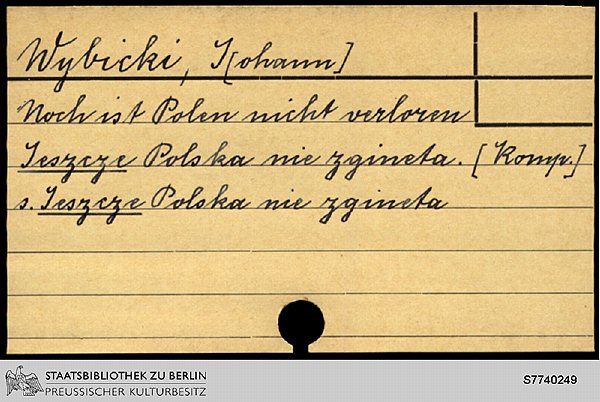 Wybicki, J[ohann]
Noch ist Polen nicht verloren
Jeszcze Polska nie zgineta. [Komp.]
s. Jeszcze Polska nie zgineta
STAATSBIBLIOTHEK ZU BERLIN
PREUSSISCHER KULTURBESITZ
S7740249